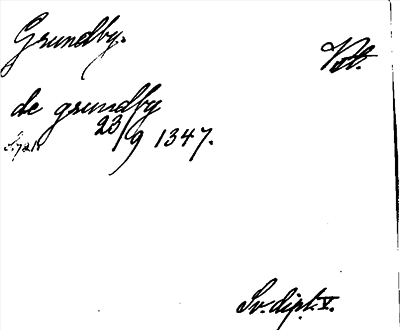 Grundby.
Vst.
de grundby
23/9 1347.
Sv. dipl. V.